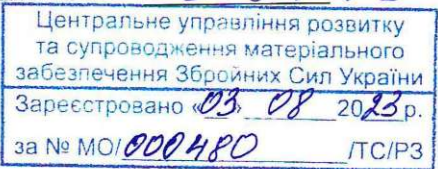 Центральне управління розвитку
та супроводження матеріального
забезпечення Збройних Сил України
Зареєстровано «03» 08 2023 р.
за № МО/000480 /ТС/РЗ